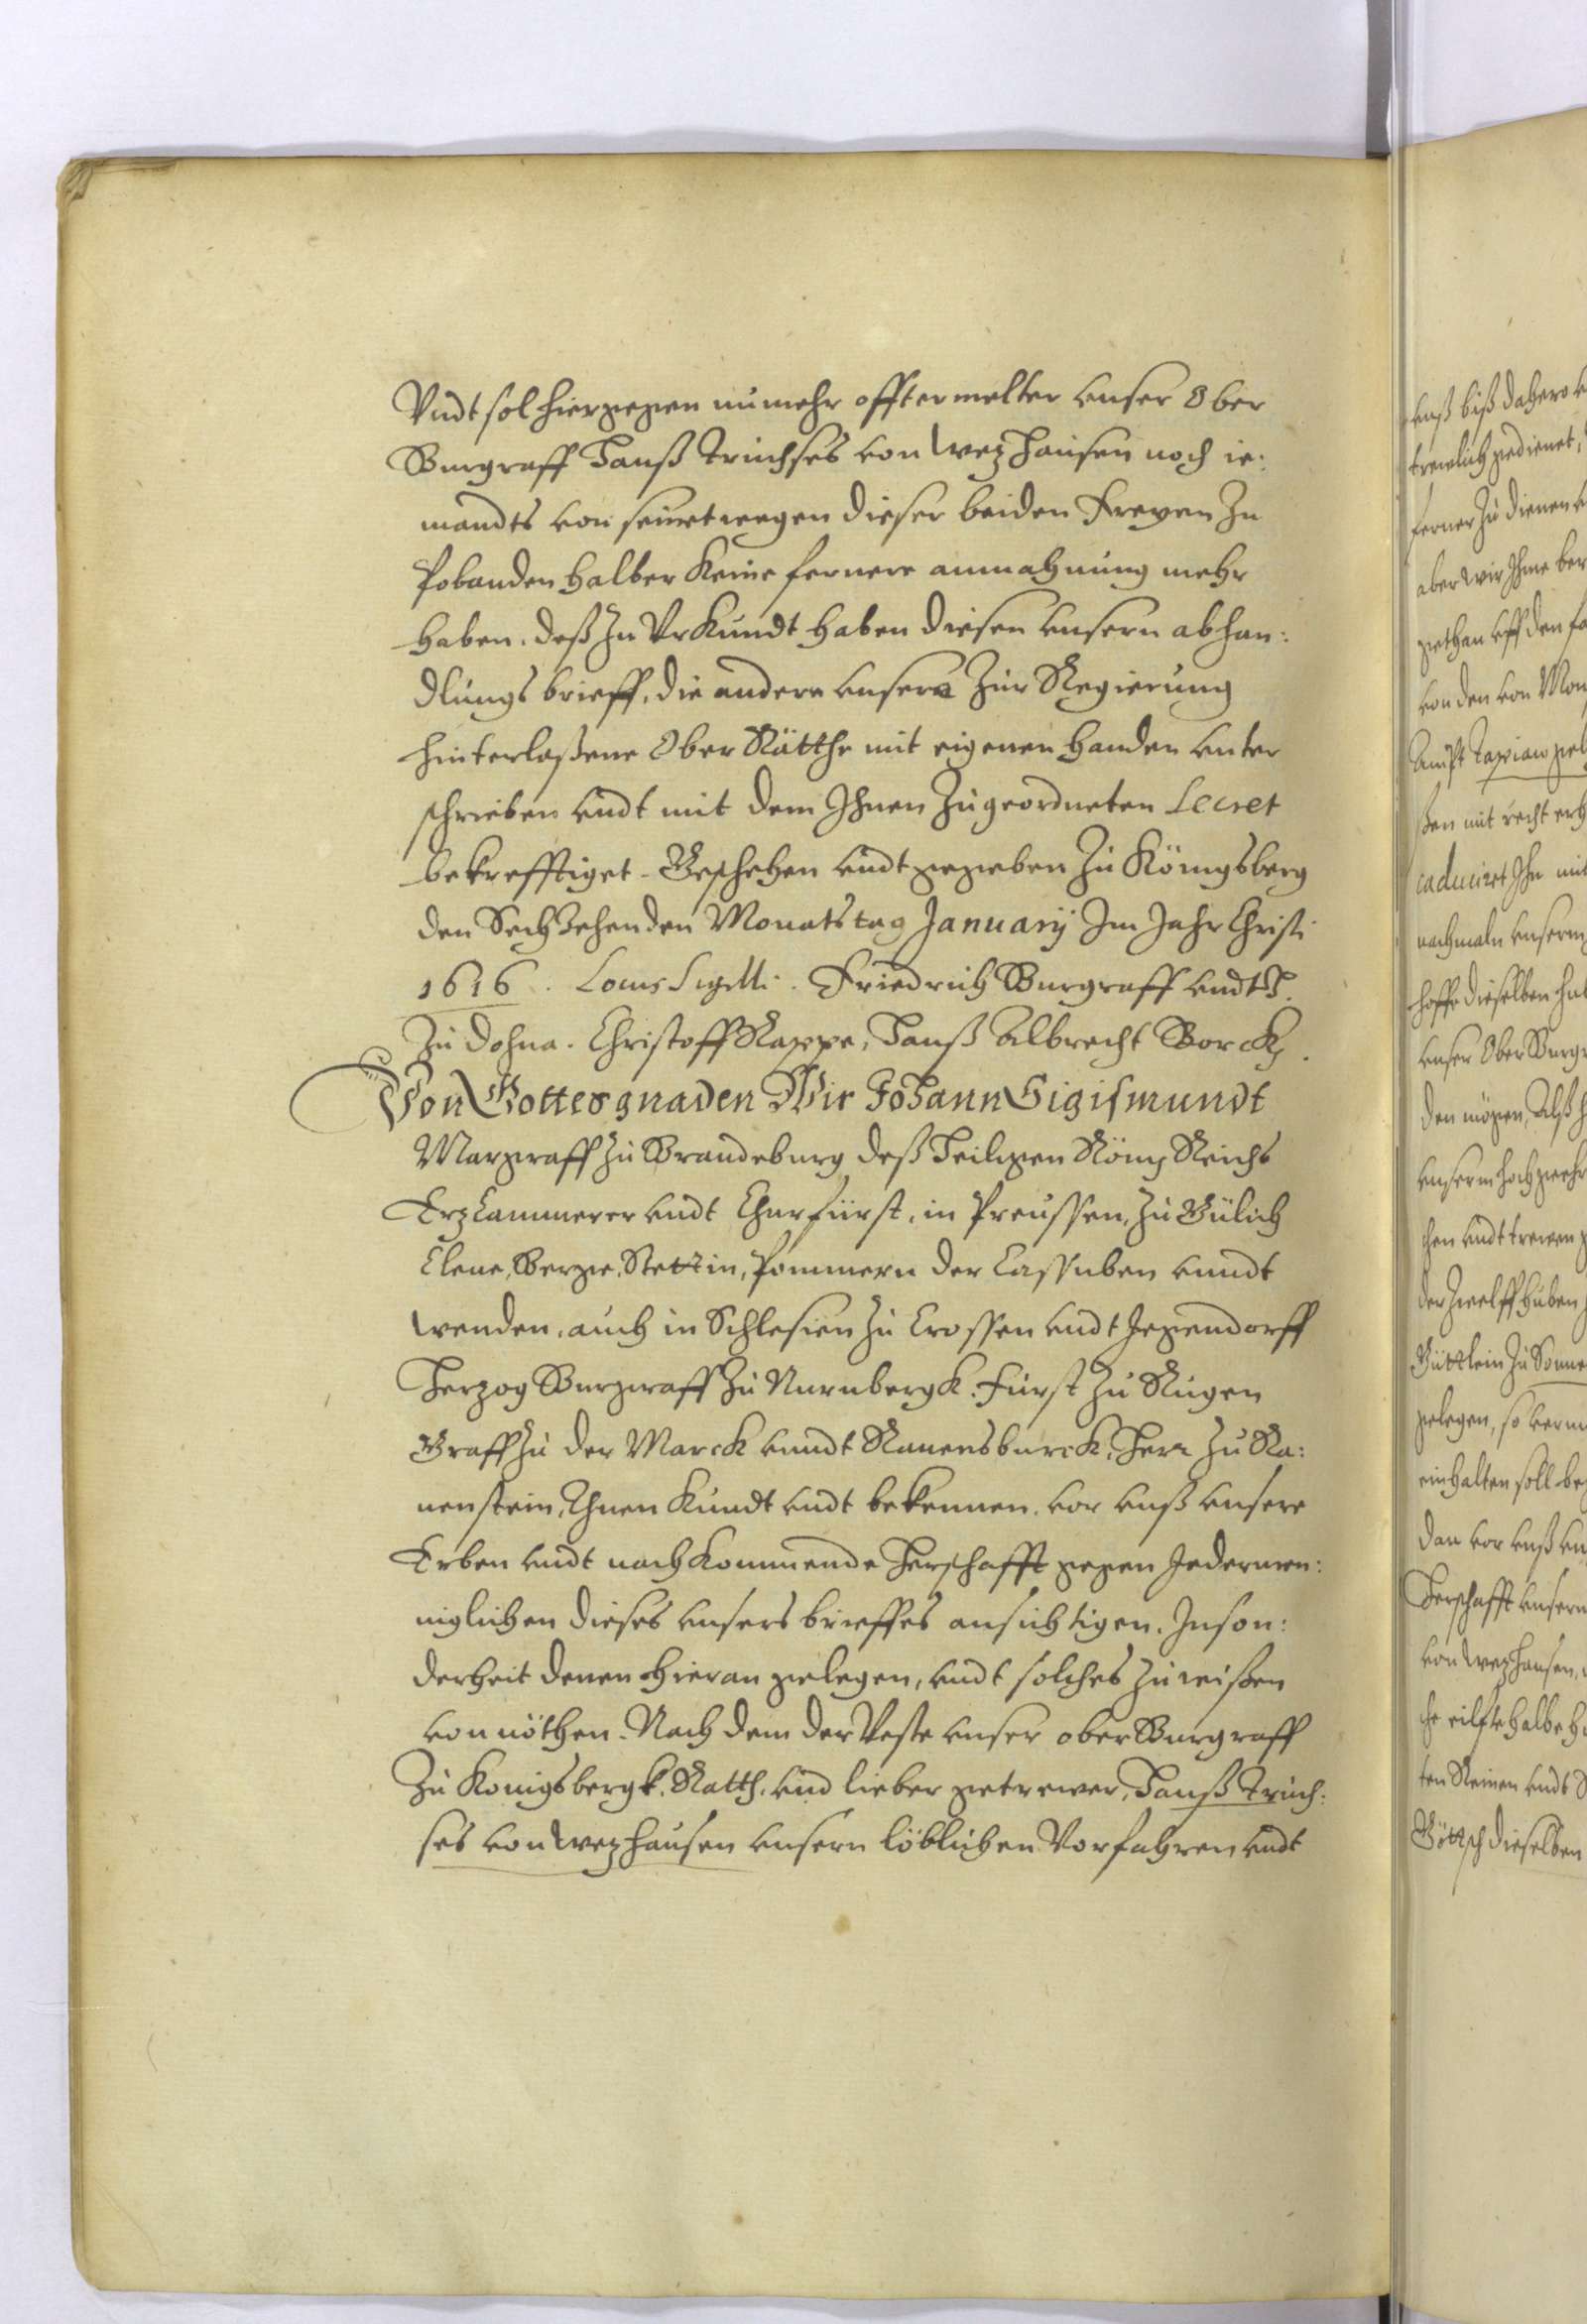 Vndt sol hiergegen numehr offtermelter vnser Ober
Burgraff Hanß Truchses von Wezhausen noch ie:
mandts von seinetwegen dieser beiden Freyen Zu
Pobanden halber Keine fernere anmahnung mehr
haben. deß zu VrKundt haben diesen vnsern abhan:
dlungs brieff, die andere vnsere Zur Regierung
hinterlaßene Ober Rätthe mit eigenen handen vnter
schrieben vndt mit dem Ihnen Zugeordneten Secret
bekrefftiget. Geschehen vndt gegeben Zu Königsberg
den Sechzehenden Monatstag January Im Jahr Christi
1616. Locus Sigilli. Friedrich Burgraff vndt H.
Zu Dohna. Christoff Rappe, Hanß Albrecht Borck.
Von Gottes gnaden Wir Johann Sigismundt
Marggraff Zu Brandeburg deß Heiligen Röm Reichs
ErzCammerer vndt Churfürst, in Preussen, Zu Gülich
Cleue, Berge, Stettin, Pommern der Cassuben vnndt
Wenden, auch in Schlesien Zu Crossen vndt Jegendorff
Herzog Burgraff Zu Nurnbergk. Fürst Zu Rugen
Graff Zu der Marck vnndt Rauensburck, Herr Zu Ra:
uenstein, Thuen Kundt vndt bekennen. vor vnß vnsere
Erben vndt nachKommende Herschafft gegen Jedermen:
niglichen dieses vnsers brieffes ansichtigen. Inson:
derheit denen hieran gelegen, vndt solches Zu wißen
von nöthen. Nach dem der Veste vnser ober Burgraff
Zu Konigsbergk. Ratth. vnd lieber getrewer, Hanß Truch:
ses von Wezhausen vnsern löblichen Vorfahren vndt
vnß biß dahero
trewlich gedienet,
ferner Zu dienen
aber wir Ihme
gethan vff den
von den von
Ampt Tapiaw
ßen mit recht
caduciret Ihn mit
nachmaln vnserm
hoffe dieselben
vnser Ober
den mögen, Alß
vnserm
vndt trewen
der Zwelff Huben
Güttlein Zu
gelegen, so
einhalten soll
dan vor vnß
Herschafft vnserm
von Wezhausen,
eilfte halbe
vndt
dieselben